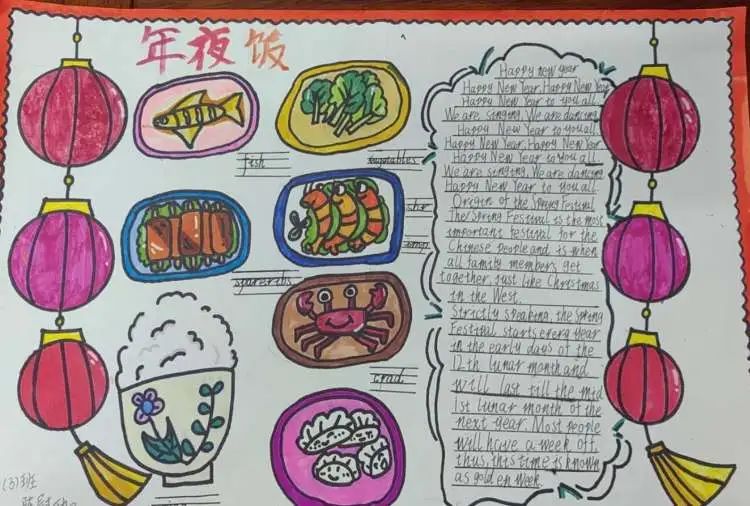 年夜饭
fish
vagetables
shr
imp
squareribs
crad
Happy new year
Happy New Year, Happy New Year
Happy New Year to you all
We are singing, We are dancing
Happy New Year to you all,
Happy New Year, Happy New Year
Happy New Year to you all
We are singing, We are dancing
Happy New Year to you all
Origin of the Spring Festival
The Spring Festival is the most
important festival for the
Chinese people and is when
all family members get
together, just like Christmas
in the West.
Strictly speaking, the Spring
Festival starts every year
in the early days of the
12th lunar month and
will last till the mid
1st lunar month of the
next year. Most people
will have a week off,
thus, this time is known
as golden Week.
(3)班